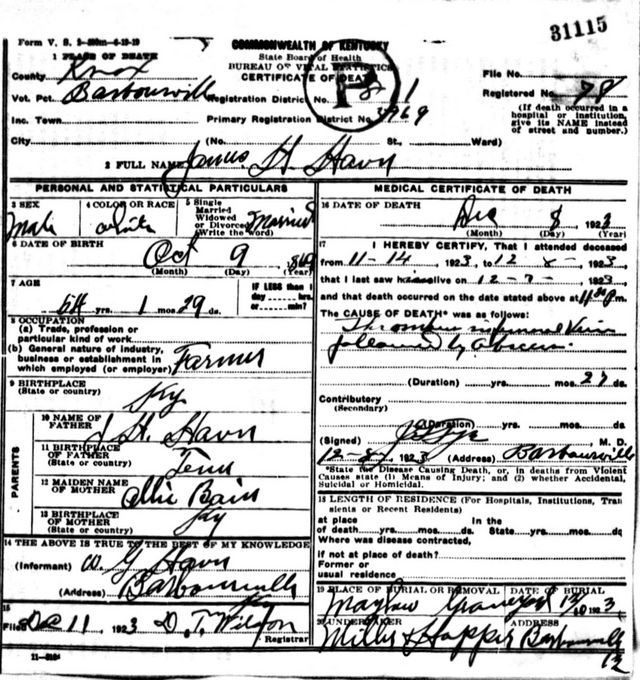 31115
Form V. S. 
1 PLACE OF DEATH
COMMONWEALTH OF KENTUCKY
State Board of Health
BUREAU OF VITAL STATISTICS
CERTIFICATE OF DEATH
County Knox
File No.
Vot. Pct. Barbourville
Registration District No. 1
Registered No. 98
Inc. Town
Primary Registration District No. 
(If death occurred in a hospital or institution, give its NAME instead of street and number.)
City (No. St., Ward)
2 FULL NAME James H. Hawn
PERSONAL AND STATISTICAL PARTICULARS
3 SEX
Male
4 COLOR OR RACE
White
5 Single
Married
Widowed
or Divorced
(Write the word)
Married
6 DATE OF BIRTH
Oct 9 1869
(Month) (Day) (Year)
7 AGE
54 yrs. 1 mos. 29 ds.
IF LESS than 1 day hrs. or min.?
8 OCCUPATION
(a) Trade, profession or particular kind of work
(b) General nature of industry, business or establishment in which employed (or employer) Farmer
9 BIRTHPLACE
(State or country)
Ky
PARENTS
10 NAME OF FATHER
H. Hawn
11 BIRTHPLACE OF FATHER
(State or country)
Tenn
12 MAIDEN NAME OF MOTHER
Allie Bain
13 BIRTHPLACE OF MOTHER
(State or country)
Ky
14 THE ABOVE IS TRUE TO THE BEST OF MY KNOWLEDGE
(Informant) W. G. Hawn
(Address) Barbourville
Ky
15
Filed Dec 11, 1923 D. T. Wilson
Registrar
MEDICAL CERTIFICATE OF DEATH
16 DATE OF DEATH
Dec 8 1923
(Month) (Day) (Year)
17 I HEREBY CERTIFY, That I attended deceased
from 11-14 1923, to 12 8- 1923,
that I last saw him alive on 12-7- 1923
and that death occurred on the date stated above at m.
The CAUSE OF DEATH* was as follows:
Thrombus in femoral Vein
followed by abscess.
(Duration) yrs. mos. 27 ds.
Contributory
(Secondary)
(Duration) yrs. mos. ds.
(Signed) M. D.
12-8, 1923 (Address) Barbourville
*State the Disease Causing Death, or, in deaths from Violent Causes state (1) Means of Injury; and (2) whether Accidental, Suicidal or Homicidal.
18 LENGTH OF RESIDENCE (For Hospitals, Institutions, Transients or Recent Residents)
at place of death yrs. mos. ds. In the State yrs. mos. ds
Where was disease contracted,
if not at place of death?
Former or usual residence
19 PLACE OF BURIAL OR REMOVAL DATE OF BURIAL
Graveyard 1923
20 UNDERTAKER ADDRESS
Miller & Hopper Barbourville